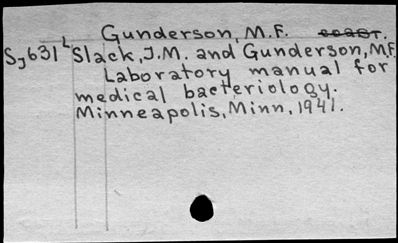 Gunderson, M.F. соавт.
Sj631L Slack, J.M. and Gunderson, M.F.
Laboratory manual for
medical bacteriology.
Minneapolis, Minn, 1941.